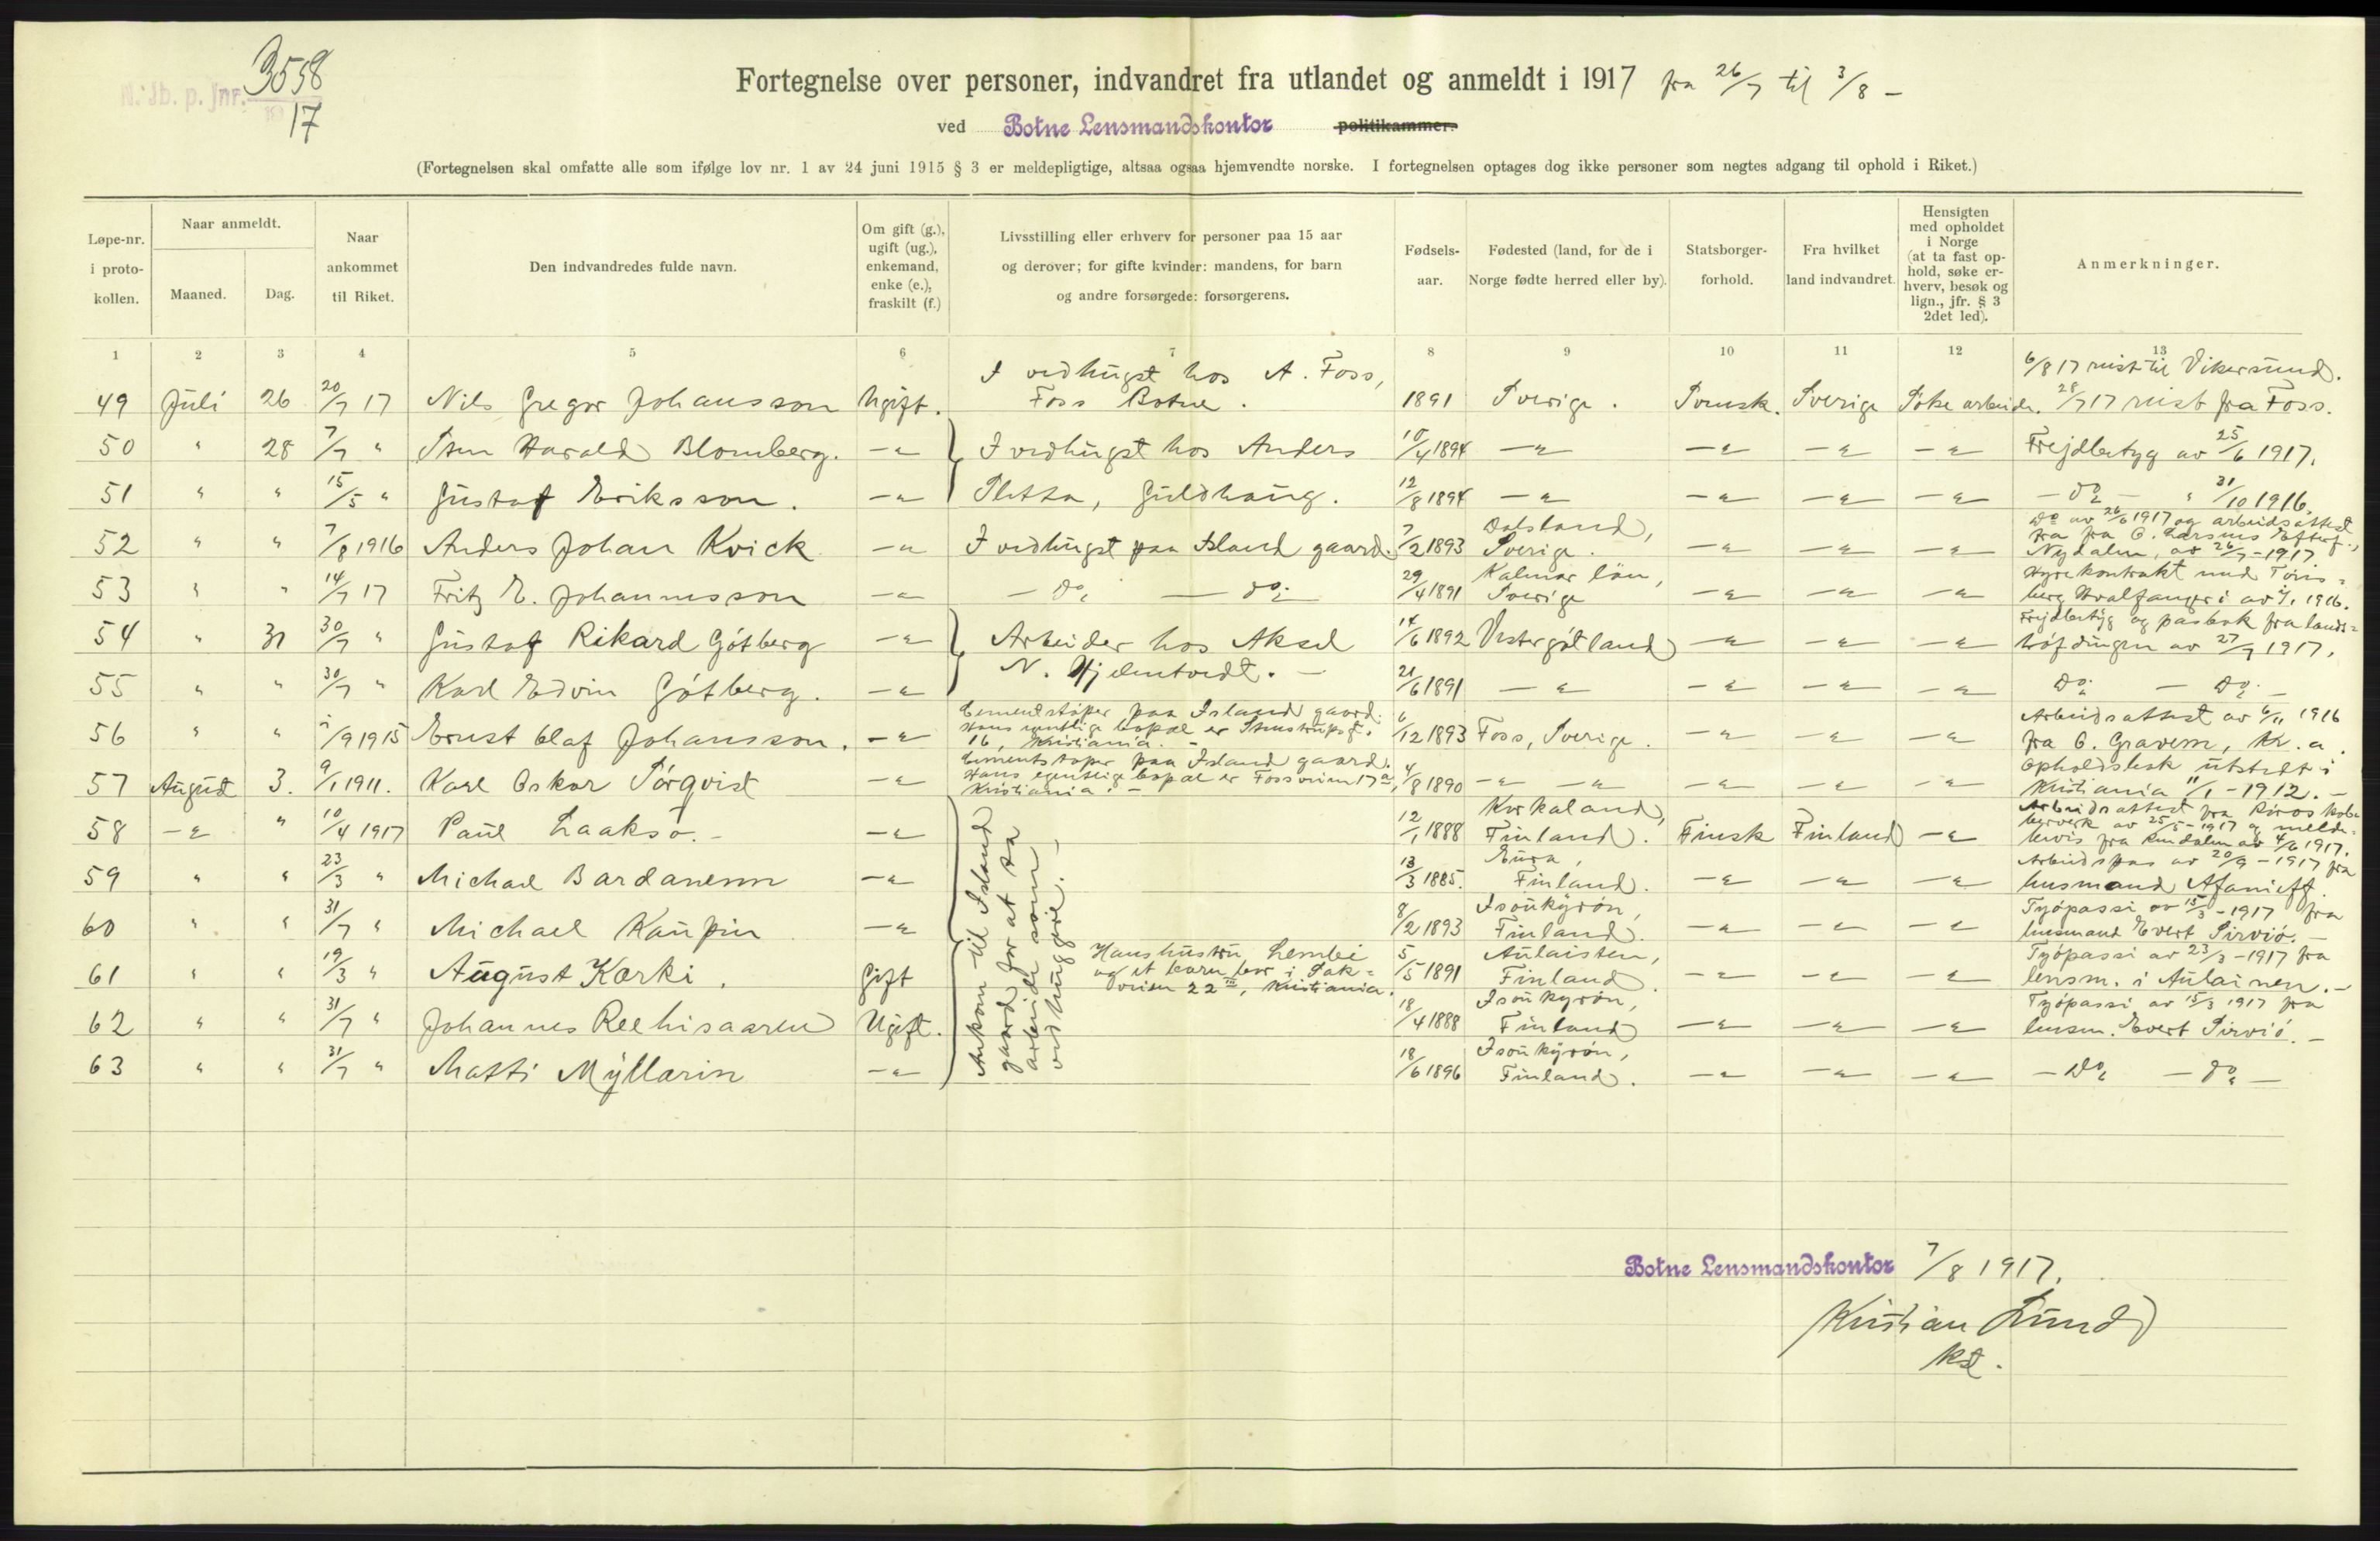 3558
N. Jb. p. Jnr.
17
Fortegnelse over personer, indvandret fra utlandet og anmeldt i 1917 fra 26/7 til 3/8 –
ved Botne Lensmandskontor politikammer.
(Fortegnelsen skal omfatte alle som ifølge lov nr. 1 av 24 juni 1915 § 3 er meldepligtige, altsaa ogsaa hjemvendte norske. I fortegnelsen optages dog ikke personer som negtes adgang til ophold i Riket.)
Løpe-nr. i proto-kollen.
Naar anmeldt.
Maaned.
Dag.
Naar ankommet til Riket.
Den indvandredes fulde navn.
Om gift (g.), ugift (ug.), enkemand, enke (e.), fraskilt (f.)
Livsstilling eller erhverv for personer paa 15 aar og derover; for gifte kvinder: mandens, for barn og andre forsørgede: forsørgerens.
Fødsels-aar.
Fødested (land, for de i Norge fødte herred eller by).
Statsborger-forhold.
Fra hvilket land indvandret.
Hensigten med opholdet i Norge (at ta fast op-hold, søke er-hverv, besøk og lign., jfr. § 3 2det led).
Anmerkninger.
1 2 3 4 5 6 7 8 9 10 11 12 13
49 Juli 26 20/7 17 Nils Gregor Johansson Ugift. I vedhugst hos A. Foss, Foss Botne. 1891 Sverige. Svensk. Sverige Søke arbeide. 6/8 17 reist til Vikersund. 28/7 17 reist fra Foss.
50 " 28 7/7 " Sten Harald Blomberg. –"– I vedhugst hos Anders 10/4 1894 –"– –"– –"– –"– Frejdbetyg av 25/6 1917.
51 " " 15/5 " Gustaf Eriksson. –"– Pletta, Guldhaug. 12/8 1894 –"– –"– –"– –"– – Do – " 31/10 1916.
52 " " 7/8 1916 Anders Johan Kvick –"– I vedhugst paa Island gaard. 7/2 1893 Dalsland, Sverige. –"– –"– –"– Do av 26/6 1917 og arbeidsattest fra C. Larsens Efterf., Nydalen, av 26/7 - 1917
53 " " 14/7 17 Fritz E. Johannesson –"– – do – do – 29/4 1891 Kalmar län, Sverige –"– –"– –"– Hyrekontrakt med Tøns-berg Hvalfangeri av 1916.
54 " 31 30/7 " Gustaf Rikard Götberg –"– Arbeider hos Aksel 14/6 1892 Vestergötland –"– –"– –"– Frejdbetyg og pasbok fra lands-höfdingen av 27/7 1917.
55 " " 30/7 " Karl Edvin Götberg. –"– N. Hjelmtvedt. – 21/6 1891 –"– –"– –"– –"– Do – Do –
56 " " 1/9 1915 Ernst Olaf Johansson. –"– Cementstøper paa Island gaard. Hans egentlige bopæl er 16, Kristiania. – 6/12 1893 Foss, Sverige. –"– –"– –"– Arbeidsattest av 6/11 1916 fra C. Gravem, Kr.a.
57 August 3. 9/1 1911. Karl Oskar Törqvist –"– Cementstøper paa Island gaard. Hans egentlige bopæl er Fossveien 17 a, Kristiania. – 4/8 1890 –"– –"– –"– –"– –"– Opholdsbok utstedt i Kristiania 11/1 - 1912. –
58 –"– " 10/4 1917 Paul Laakso. – –"– 12/1 1888 Finland. Finsk Finland –"– Arbeidsattest fra Røros kobberverk av 25/5 - 1917 og melde-bevis fra av 4/6 1917.
59 " " 23/3 " Michael Bardanenm –"– 13/3 1885. Eura, Finland. –"– –"– –"– Arbeidspas av 20/9 - 1917 fra lensmand Afanieff.
60 " " 31/7 " Michael Kaupin –"– 8/2 1893 Isoukyrön, Finland. –"– –"– –"– Työpassi av 15/3 - 1917 fra lensmand Evert Sirviö. –
61 " " 19/3 " August Karki. Gift Hans hustru Lembei og et barn bor i Sak-veien 22 III, Kristiania. 5/5 1891 Aulaisten, Finland. –"– –"– –"– Työpassi av 23/3 - 1917 fra lensm. i Aulainen. –
62 " " 31/7 " Johannes Reehisaaren Ugift. 18/4 1888 Isoukyrön, Finland –"– –"– –"– Työpassi av 15/3 1917 fra lensm. Evert Sirviö. –
63 " " 31/7 " Matti Myllarin –"– 18/6 1896 Isoukyrön, Finland. –"– –"– –"– – Do – Do –
Ankom til Island
gaard for at ta
arbeide som
vedhuggere. –
Botne Lensmandskontor 7/8 1917.
Kristian Lund
kst.